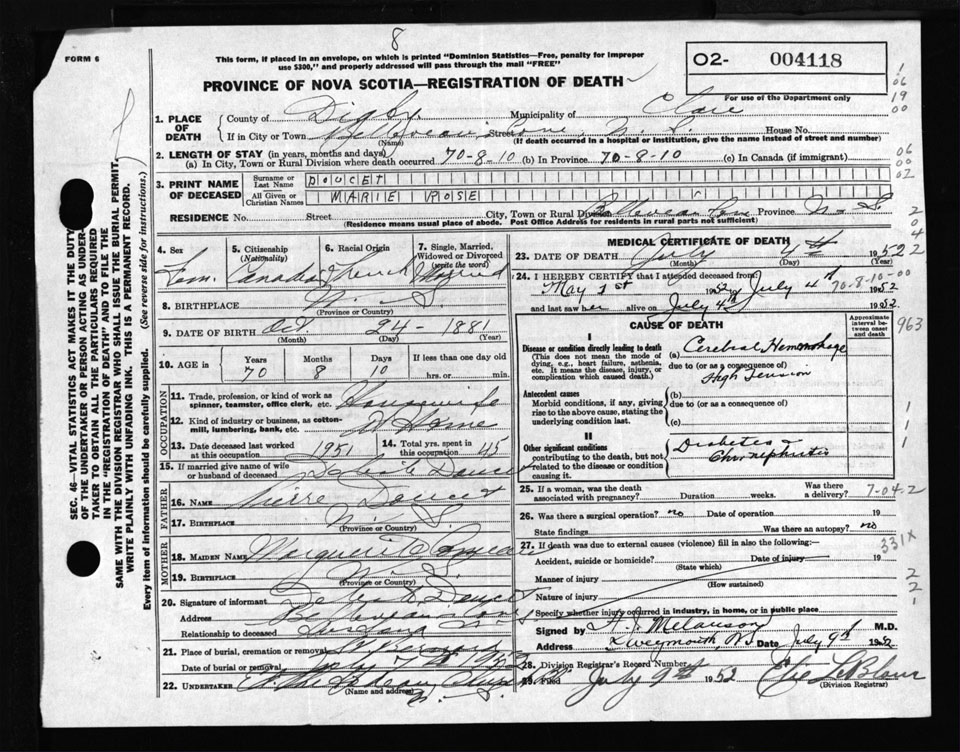 8
FORM 6
This form, if placed in an envelope, on which is printed "Dominion Statistics—Free, penalty for improper
use $300," and properly addressed will pass through the mail "FREE"
PROVINCE OF NOVA SCOTIA—REGISTRATION OF DEATH
O2- 004118
For use of the Department only
1. PLACE OF DEATH
County of Digby Municipality of Clare
If in City or Town Belliveau's Cove, N. S. Street House No.
(Name) (If death occurred in a hospital or institution, give the name instead of street and number)
2. LENGTH OF STAY (in years, months and days)
(a) In City, Town or Rural Division where death occurred 70-8-10 (b) In Province 70-8-10 (c) In Canada (if immigrant)
3. PRINT NAME OF DECEASED
Surname or Last Name DOUCET
All Given or Christian Names MARIE ROSE
RESIDENCE No. Street City, Town or Rural Division Belliveau Cove Province N-S.
(Residence means usual place of abode. Post Office Address for residents in rural parts not sufficient)
4. Sex Fem.
5. Citizenship (Nationality) Canada
6. Racial Origin French
7. Single, Married, Widowed or Divorced (write the word)
8. BIRTHPLACE N. S.
(Province or Country)
9. DATE OF BIRTH Oct. 24- 1881
(Month) (Day) (Year)
10. AGE in Years 70 Months 8 Days 10 If less than one day old hrs. or min.
OCCUPATION
11. Trade, profession, or kind of work as spinner, teamster, office clerk, etc. Housewife
12. Kind of industry or business, as cotton-mill, lumbering, bank, etc. At Home
13. Date deceased last worked at this occupation 1951
14. Total yrs. spent in this occupation 45
15. If married give name of wife or husband of deceased Doucet
FATHER
16. NAME Pierre Doucet
17. BIRTHPLACE N. S.
(Province or Country)
MOTHER
18. MAIDEN NAME Marguerite
19. BIRTHPLACE N. S.
(Province or Country)
20. Signature of informant Doucet
Address Belliveau Cove
Relationship to deceased
21. Place of burial, cremation or removal
Date of burial or removal July 7th 1952
22. UNDERTAKER
(Name and address) N. S.
MEDICAL CERTIFICATE OF DEATH
23. DATE OF DEATH July 4th 1952
(Month) (Day)
24. I HEREBY CERTIFY that I attended deceased from:
May 1st 1952 July 4th 1952
and last saw her alive on July 4th 1952
70-8-10-00
CAUSE OF DEATH
Approximate interval between onset and death
963
I
Disease or condition directly leading to death (a) Cerebral Hemorrhage
(This does not mean the mode of dying, e.g., heart failure, asthenia, etc. It means the disease, injury, or complication which caused death.)
due to (or as a consequence of)
High Tension
Antecedent causes
Morbid conditions, if any, giving rise to the above cause, stating the underlying condition last.
(b)
due to (or as a consequence of)
(c)
II
Other significant conditions contributing to the death, but not related to the disease or condition causing it.
Diabetes &
Chr. nephritis
25. If a woman, was the death associated with pregnancy? Duration weeks. Was there a delivery?
7-04.2
26. Was there a surgical operation? no Date of operation 19
State findings Was there an autopsy? no
27. If death was due to external causes (violence) fill in also the following:—
331X
Accident, suicide or homicide? Date of injury 19
(State which)
Manner of injury
(How sustained)
Nature of injury
Specify whether injury occurred in industry, in home, or in public place
Signed by Melanson M.D.
Address Weymouth, N.S. Date July 9th 1952
28. Division Registrar's Record Number
29. Filed July 9th 1952 Elie LeBlanc
(Division Registrar)
SEC. 46—VITAL STATISTICS ACT MAKES IT THE DUTY
OF THE UNDERTAKER OR PERSON ACTING AS UNDER-
TAKER TO OBTAIN ALL THE PARTICULARS REQUIRED
IN THE "REGISTRATION OF DEATH" AND TO FILE THE
SAME WITH THE DIVISION REGISTRAR WHO SHALL ISSUE THE BURIAL PERMIT.
WRITE PLAINLY WITH UNFADING INK. THIS IS A PERMANENT RECORD.
Every item of information should be carefully supplied. (See reverse side for instructions.)